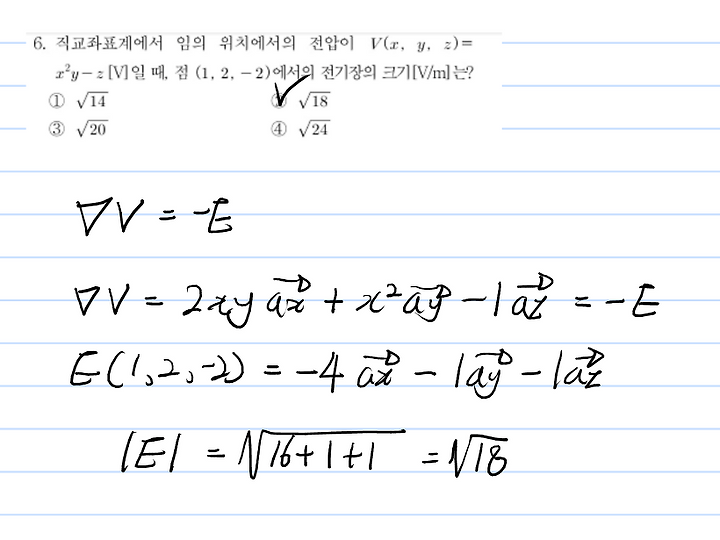 6. 직교좌표계에서 임의 위치에서의 전압이 V(x, y, z)=
x²y−z [V]일 때, 점 (1, 2, −2)에서의 전기장의 크기[V/m]는?
① √14 ② √18
③ √20 ④ √24
∇V = -E
∇V = 2xy a⃗x + x² a⃗y − 1 a⃗z = −E
E(1,2,-2) = −4 a⃗x − 1a⃗y − 1a⃗z
|E| = √(16+1+1) = √18